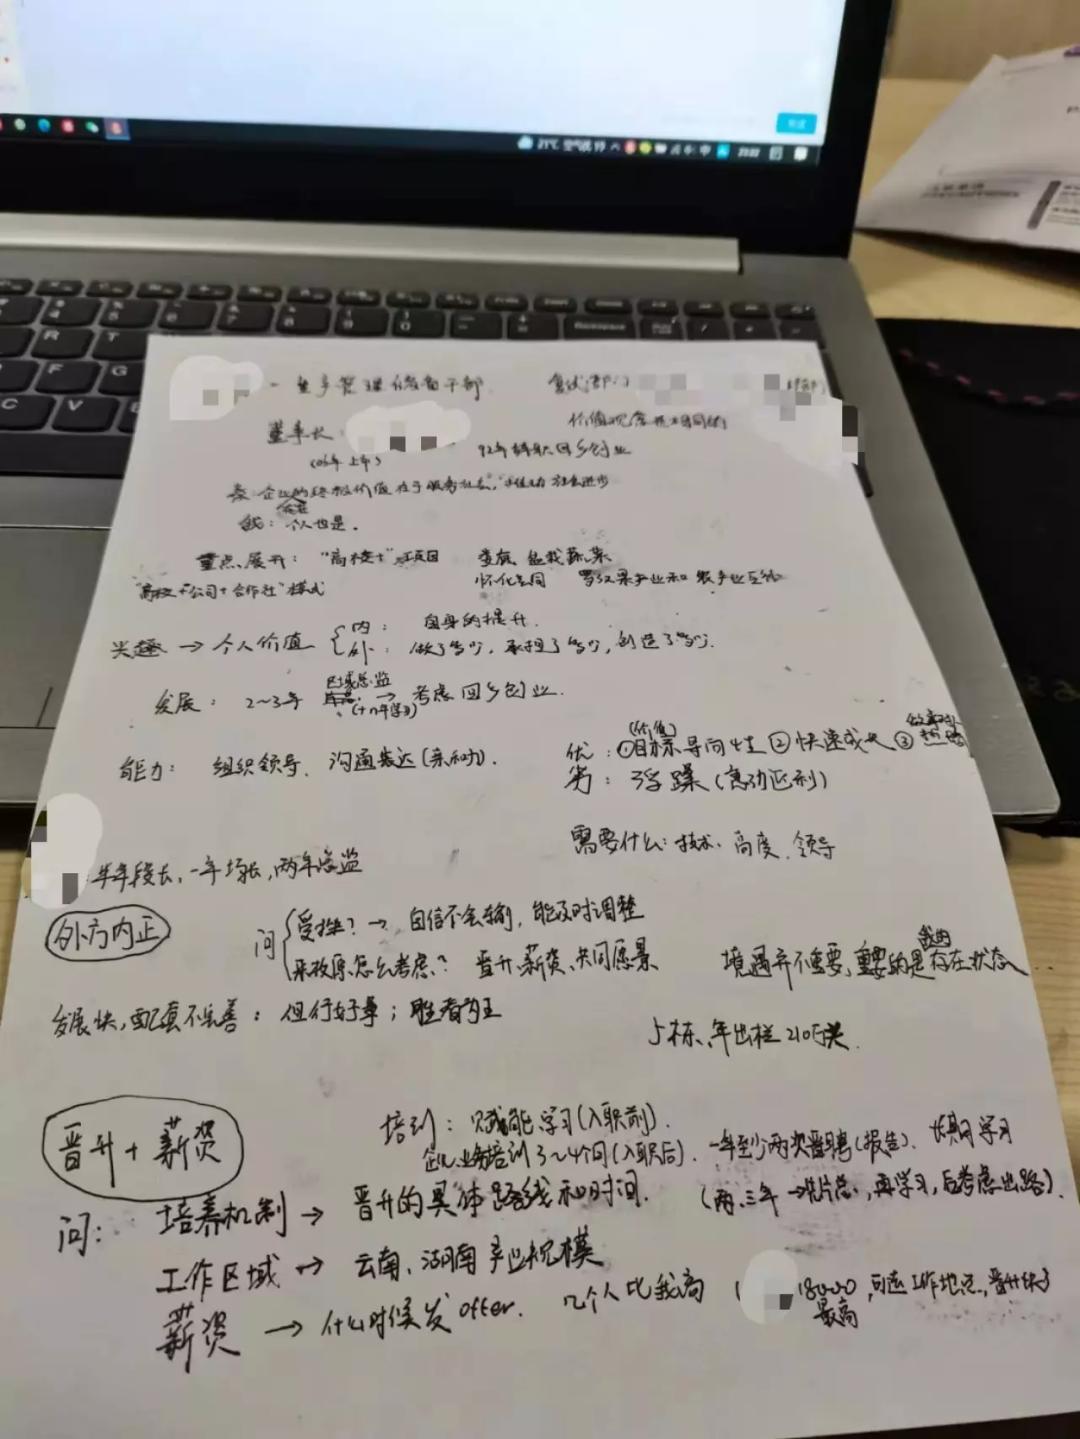 21℃ 空气优
中
23:02
管理储备干部
复试
价值观念
董事长：
92年辞职回乡创业
企业的终极价值在于服务社会，
社会进步
我：个人也是。
重点展开："高校+"项目
"高校+公司+合作社"模式
兴趣→个人价值
内：自身的提升.
外：做了多少，承担了多少，创造了多少.
发展：2~3年
区域总监
→考虑回乡创业.
能力：组织领导、沟通表达(亲和力).
(价值)
优：①目标导向性②快速成长③
劣：浮躁(急功近利)
需要什么：技术、高度、领导
半年段长，一年场长，两年总监
外方内正
问
受挫？→ 自信不会输，能及时调整
来牧原怎么考虑？晋升、薪资、共同愿景
我的
境遇并不重要，重要的是存在状态
发展快，配套不完善：但行好事；胜者为王
年出栏210万头.
晋升+薪资
培训：赋能学习(入职前).
企业培训3~4个月(入职后).一年至少两次晋聘(报告).长期学习
问：
培养机制→晋升的具体路线和时间.
(两、三年→片总，再学习，后考虑出路).
工作区域→云南、湖南产业规模
薪资→什么时候发offer.几个人比我高
可选工作地点，晋升快了
最高